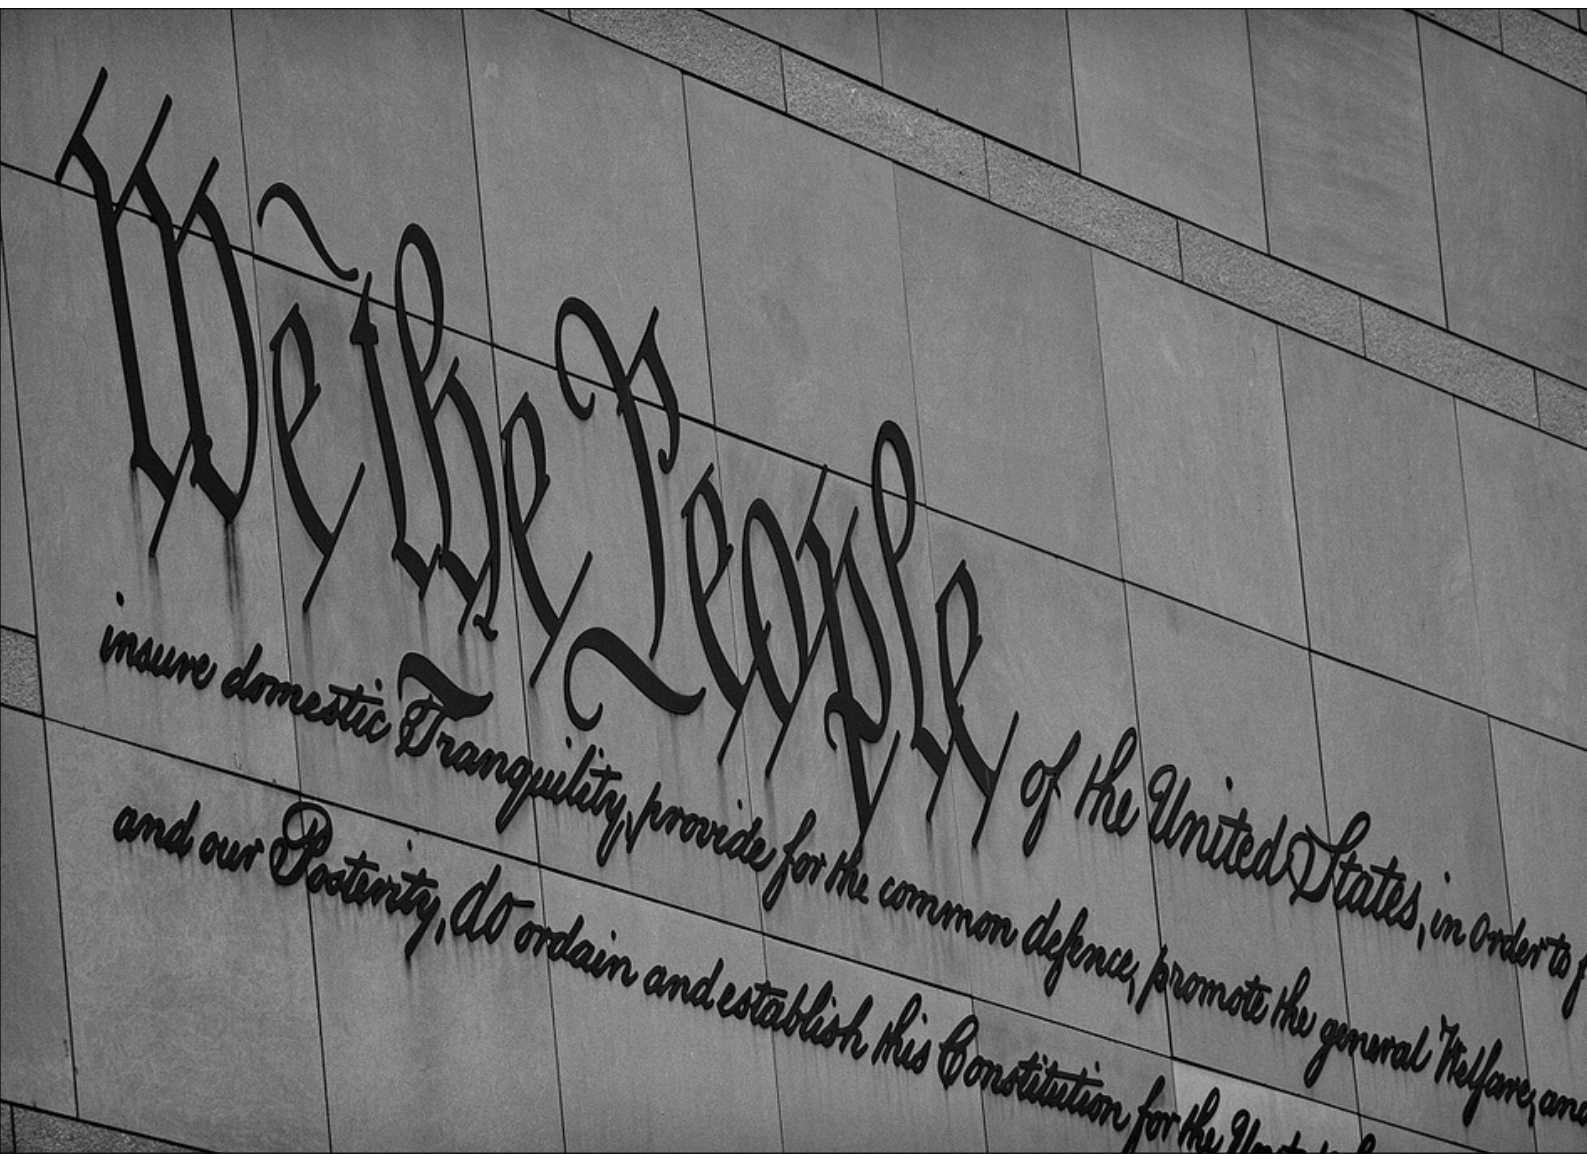 We the People of the United States, in order to
insure domestic Tranquility, provide for the common defence, promote the general Welfare, and
and our Posterity, do ordain and establish this Constitution for the